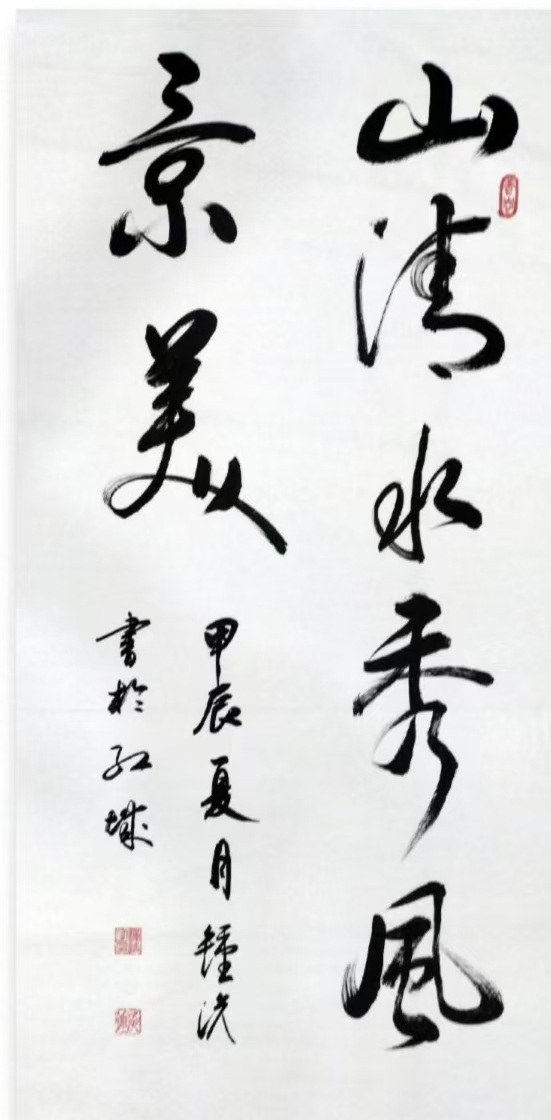 山清水秀風
景美
甲辰夏月鍾
書於江城